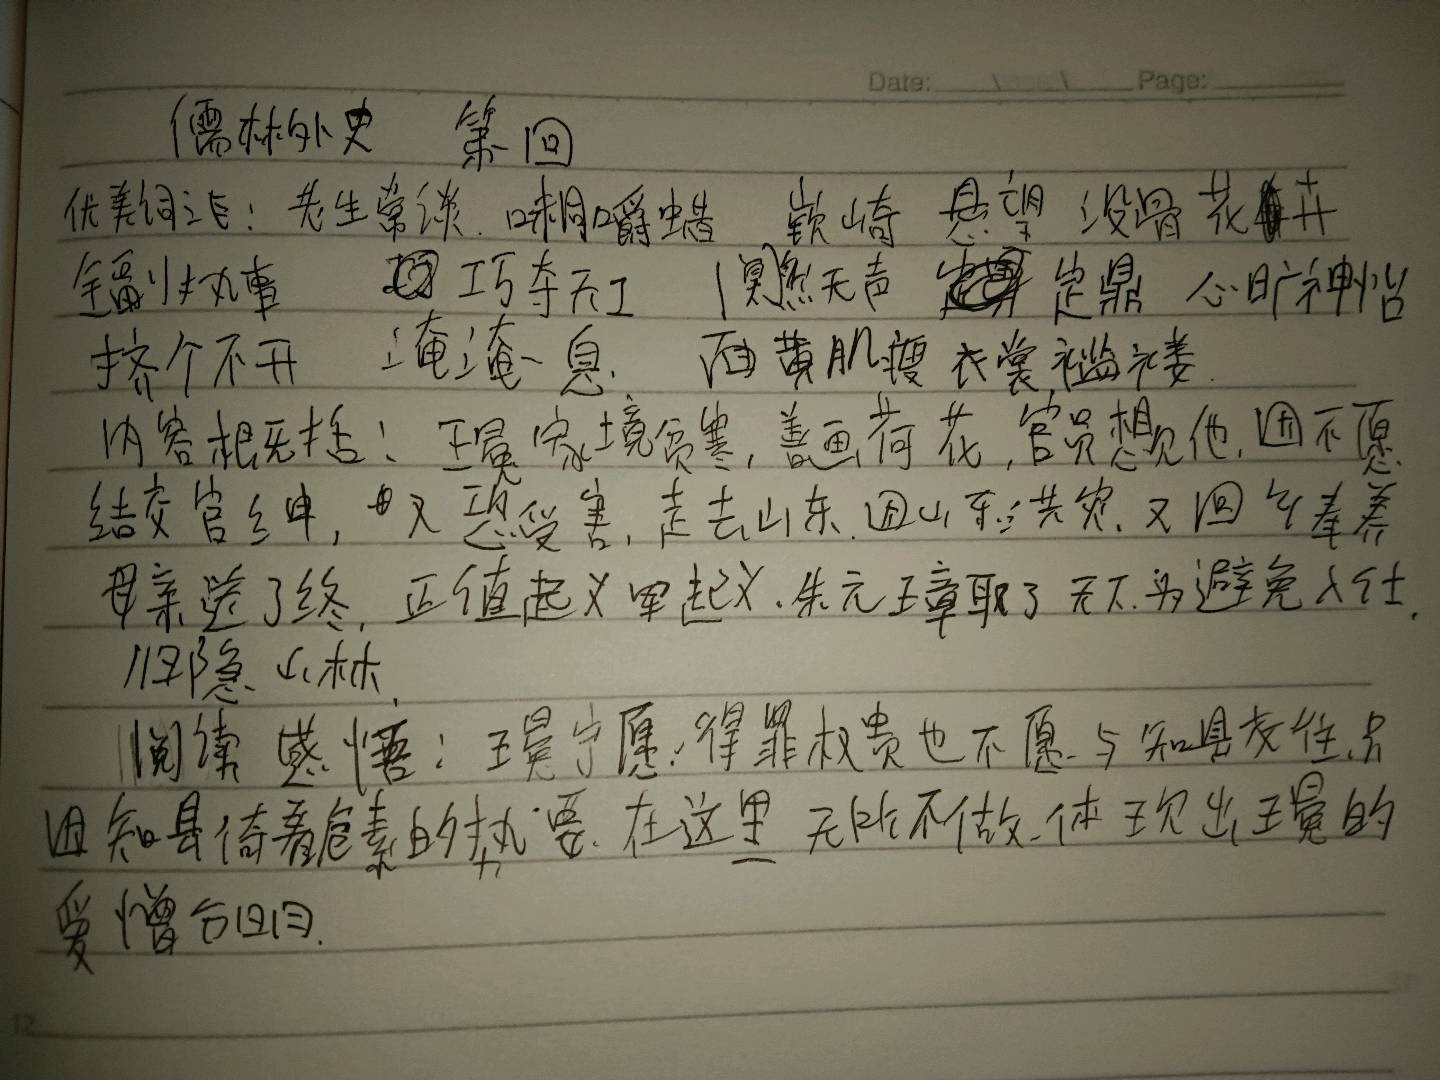 Date: Page:
儒林外史 第一回
优美词语：老生常谈 味同嚼蜡 嵚崎 悬望 没骨花卉
执事 巧夺天工 溟然无声 定鼎 心旷神怡
挤个不开 淹淹一息 面黄肌瘦 衣裳褴褛
内容概括：王冕家境贫寒，善画荷花，官员想见他，因不愿
结交官绅，又恐受害，走去山东，因山东洪灾，又回乡奉养
母亲送了终，正值起义军起义，朱元璋取了天下，为避免入仕，
归隐山林。
阅读感悟：王冕宁愿得罪权贵也不愿与知县交往，只
因知县倚着危素的势要，在这里无所不做，体现出王冕的
爱憎分明。